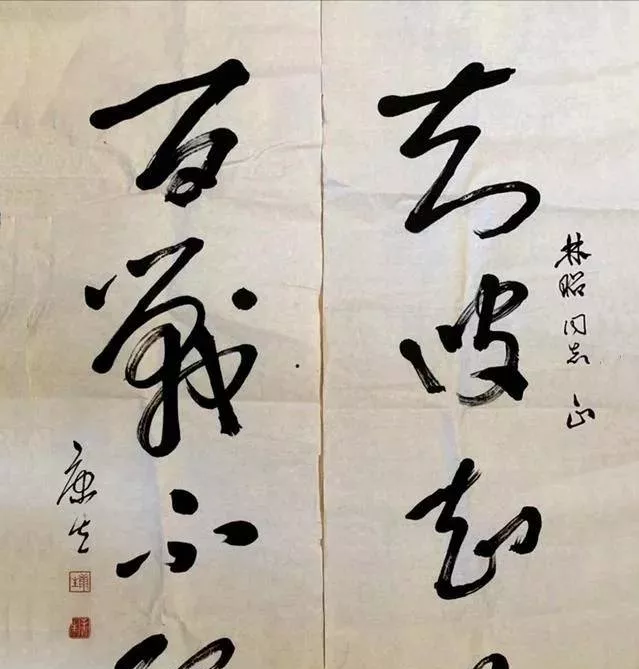 林昭同志 正
知彼知
百戰不
康生